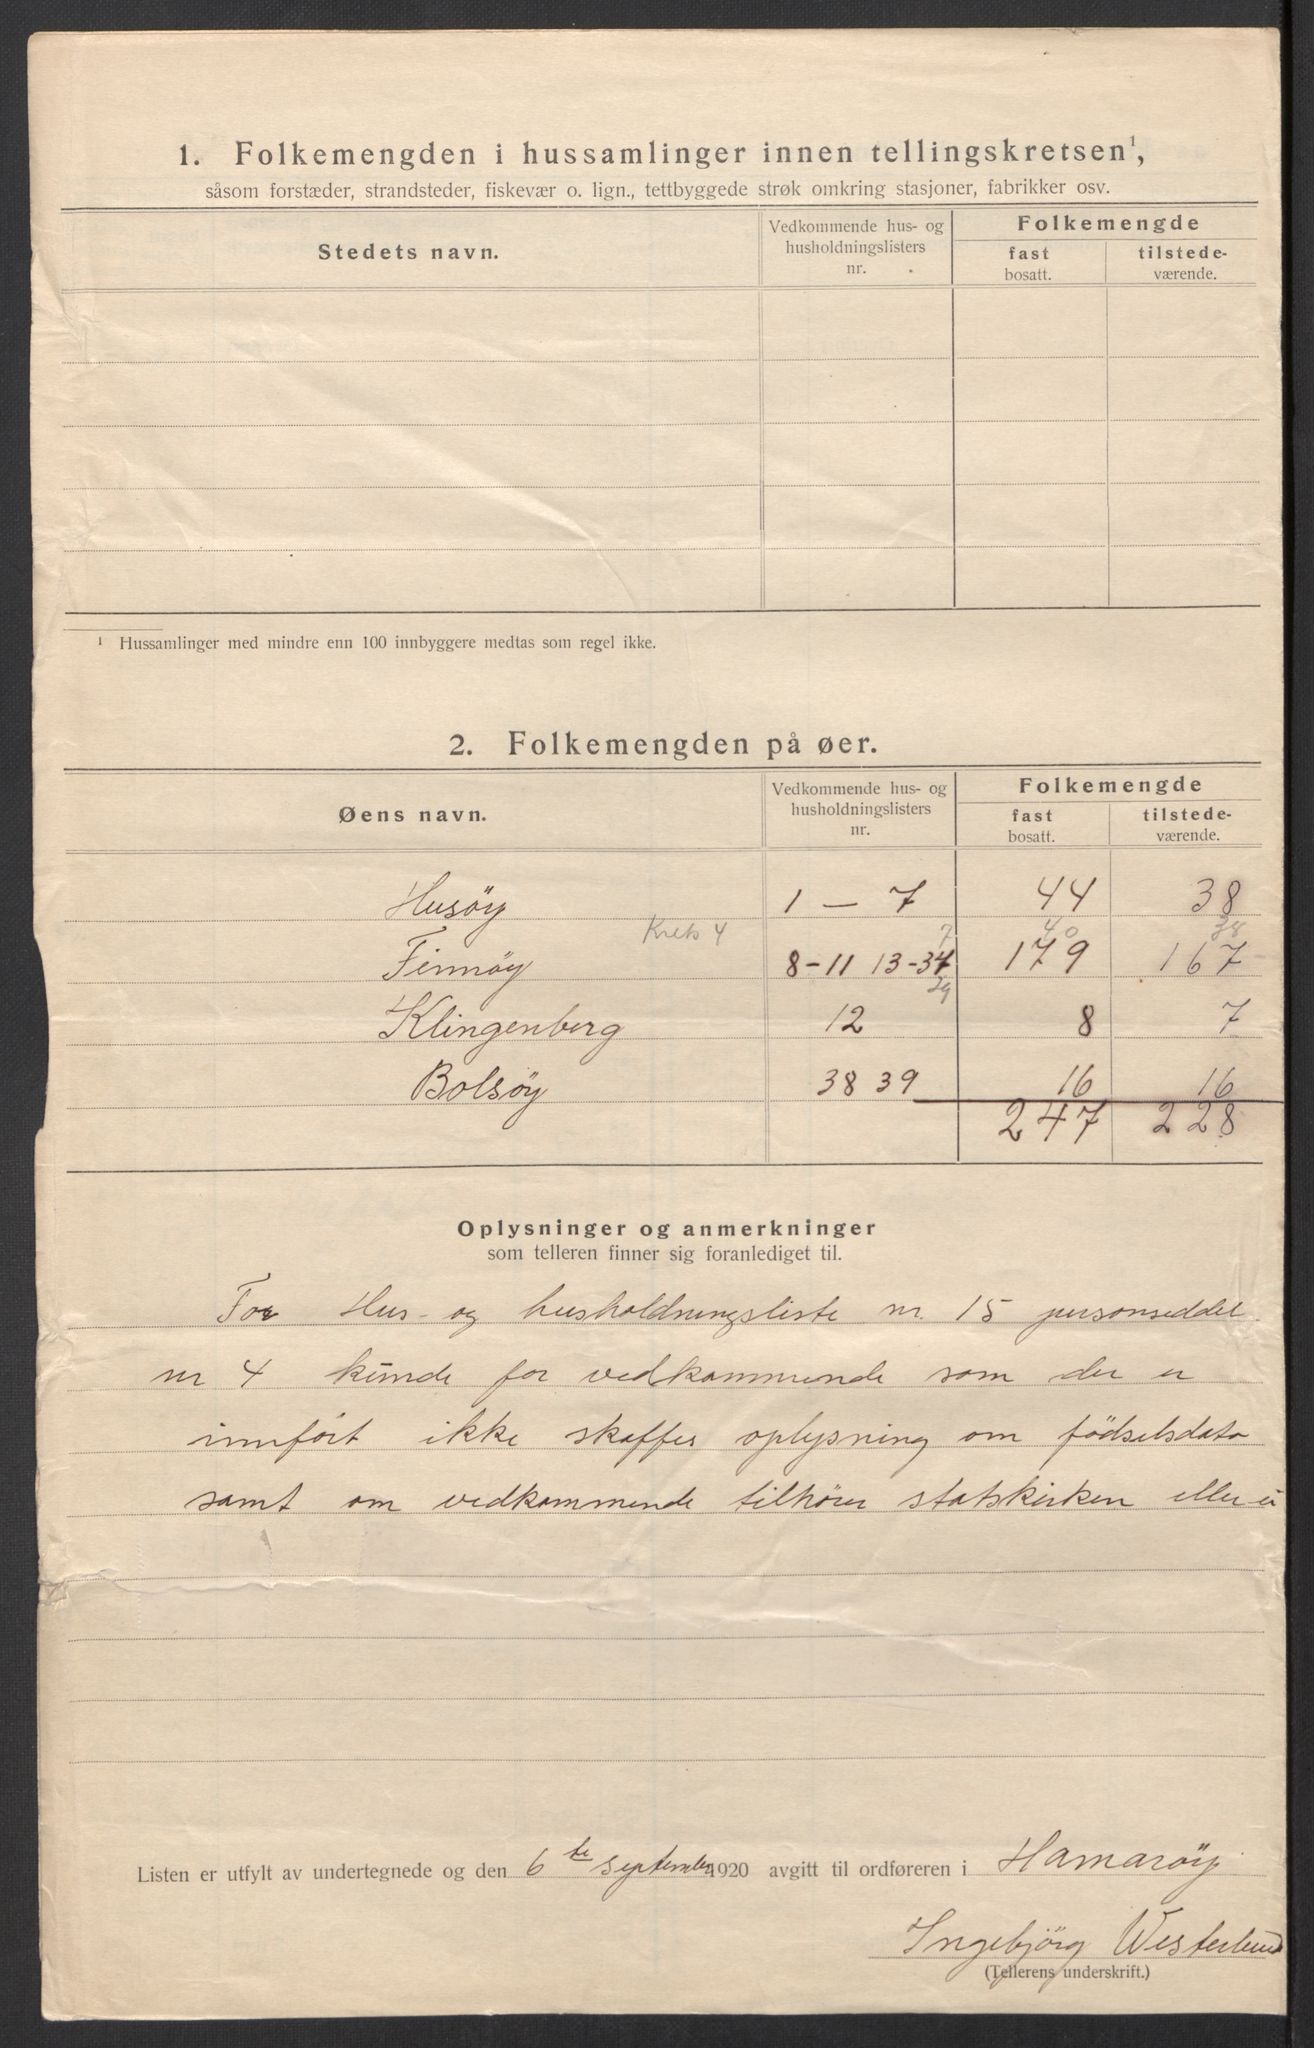 1. Folkemengden i hussamlinger innen tellingskretsen¹,
såsom forstæder, strandsteder, fiskevær o. lign., tettbyggede strøk omkring stasjoner, fabrikker osv.
Stedets navn. Vedkommende hus- og husholdningslisters nr. Folkemengde
fast bosatt. tilstede-værende.
¹ Hussamlinger med mindre enn 100 innbyggere medtas som regel ikke.
2. Folkemengden på øer.
Øens navn. Vedkommende hus- og husholdningslisters nr. Folkemengde
fast bosatt. tilstede-værende.
Husöy 1 – 7 44 38
Krets 4 7 40 38
Finnöy 8-11 13-34 179 167
29
Klingenberg 12 8 7
Bolsöy 38 39 16 16
247 228
Oplysninger og anmerkninger
som telleren finner sig foranlediget til.
For Hus- og husholdningsliste nr. 15 personseddel
nr 4 kunde for vedkommende som der er
innfört ikke skaffes oplysning om födselsdato
samt om vedkommende tilhörer statskirken eller ei
Listen er utfylt av undertegnede og den 6te september 1920 avgitt til ordføreren i Hamaröy
Ingebjörg Westerlund
(Tellerens underskrift.)